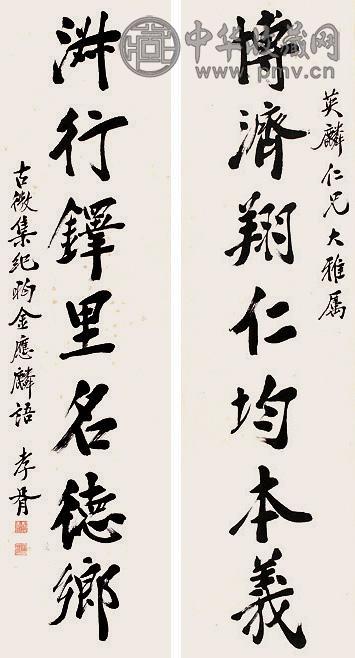 中华收藏网
www.pmv.cn
英麟仁兄大雅属
博濟翔仁均本義
淵行鐸里名德鄉
古微集紀昀金應麟語 孝胥